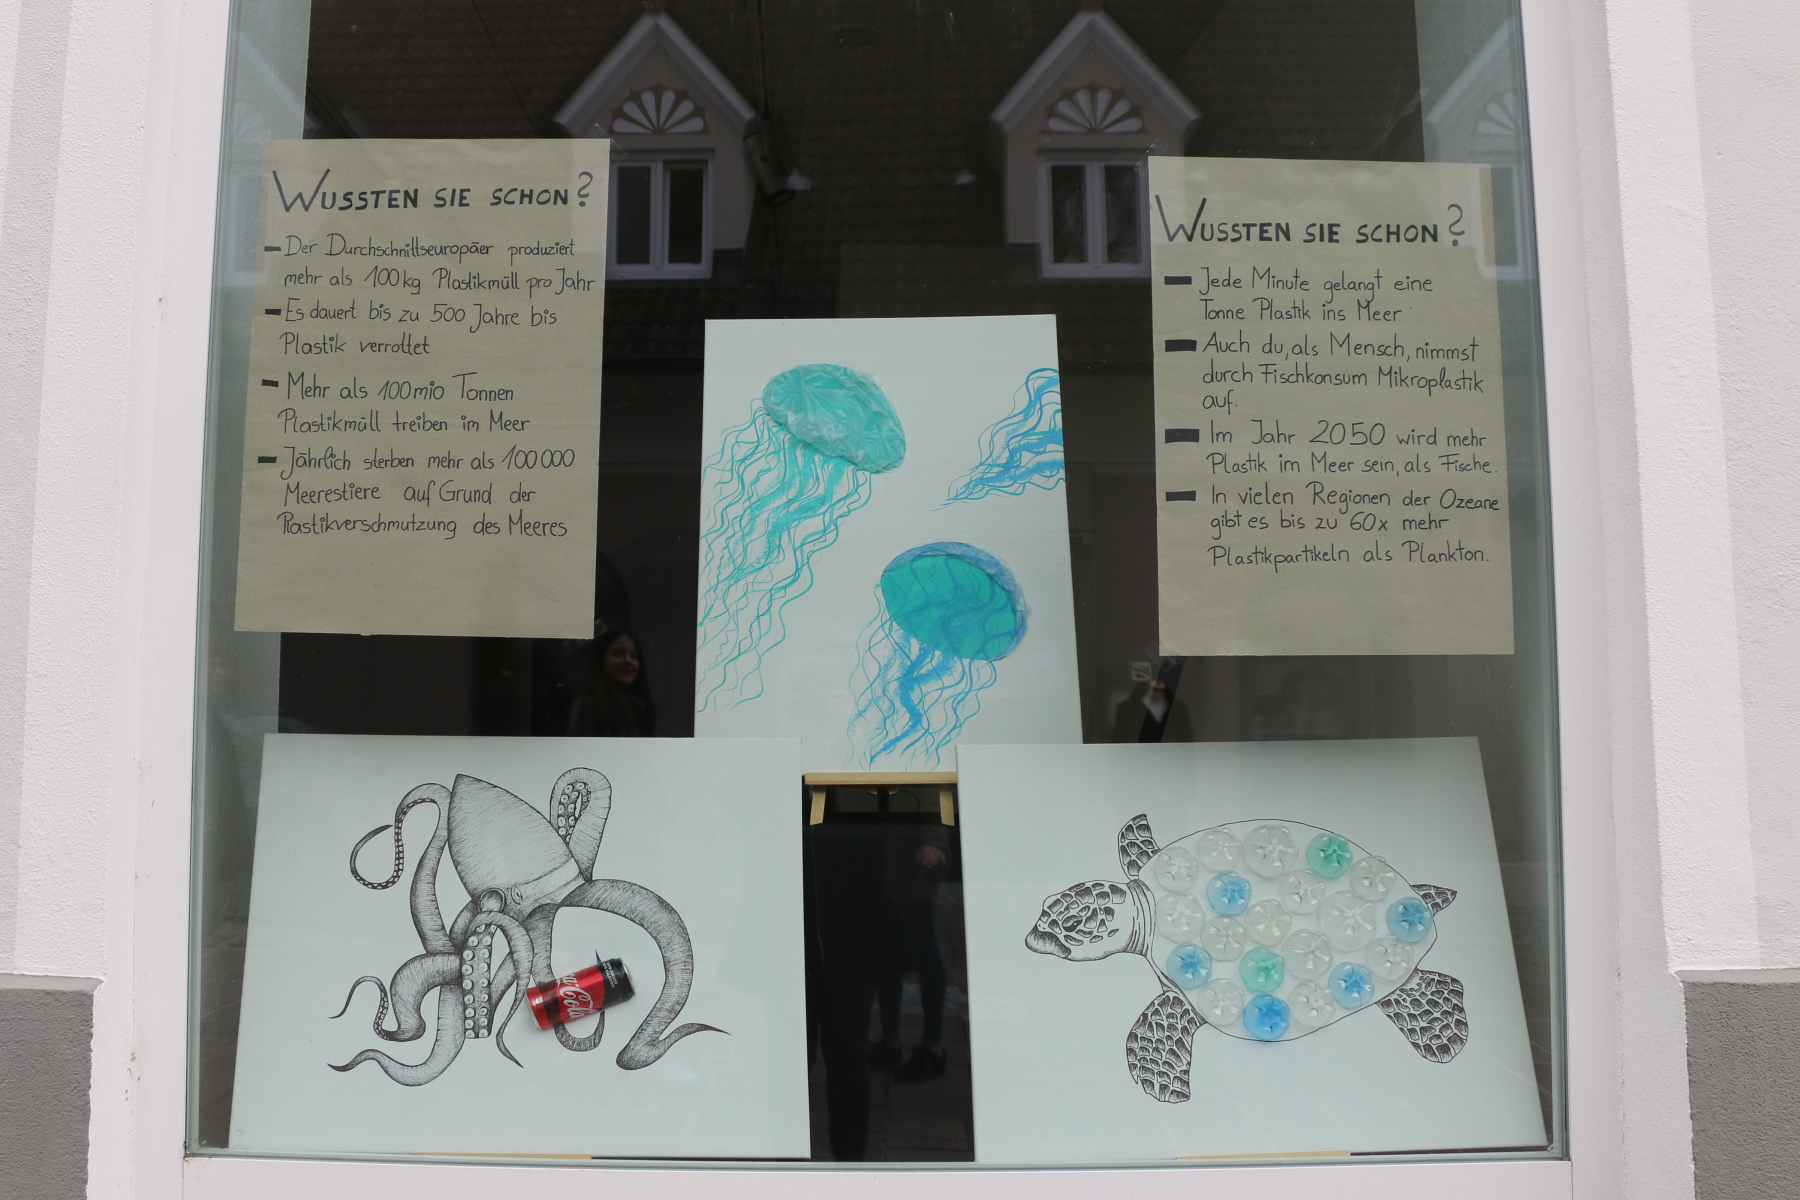 WUSSTEN SIE SCHON?
- Der Durchschnittseuropäer produziert
mehr als 100 kg Plastikmüll pro Jahr
- Es dauert bis zu 500 Jahre bis
Plastik verrottet
- Mehr als 100 mio Tonnen
Plastikmüll treiben im Meer
- Jährlich sterben mehr als 100 000
Meerestiere auf Grund der
Plastikverschmutzung des Meeres
WUSSTEN SIE SCHON?
- Jede Minute gelangt eine
Tonne Plastik ins Meer
- Auch du, als Mensch, nimmst
durch Fischkonsum Mikroplastik
auf.
- Im Jahr 2050 wird mehr
Plastik im Meer sein, als Fische.
- In vielen Regionen der Ozeane
gibt es bis zu 60x mehr
Plastikpartikeln als Plankton.